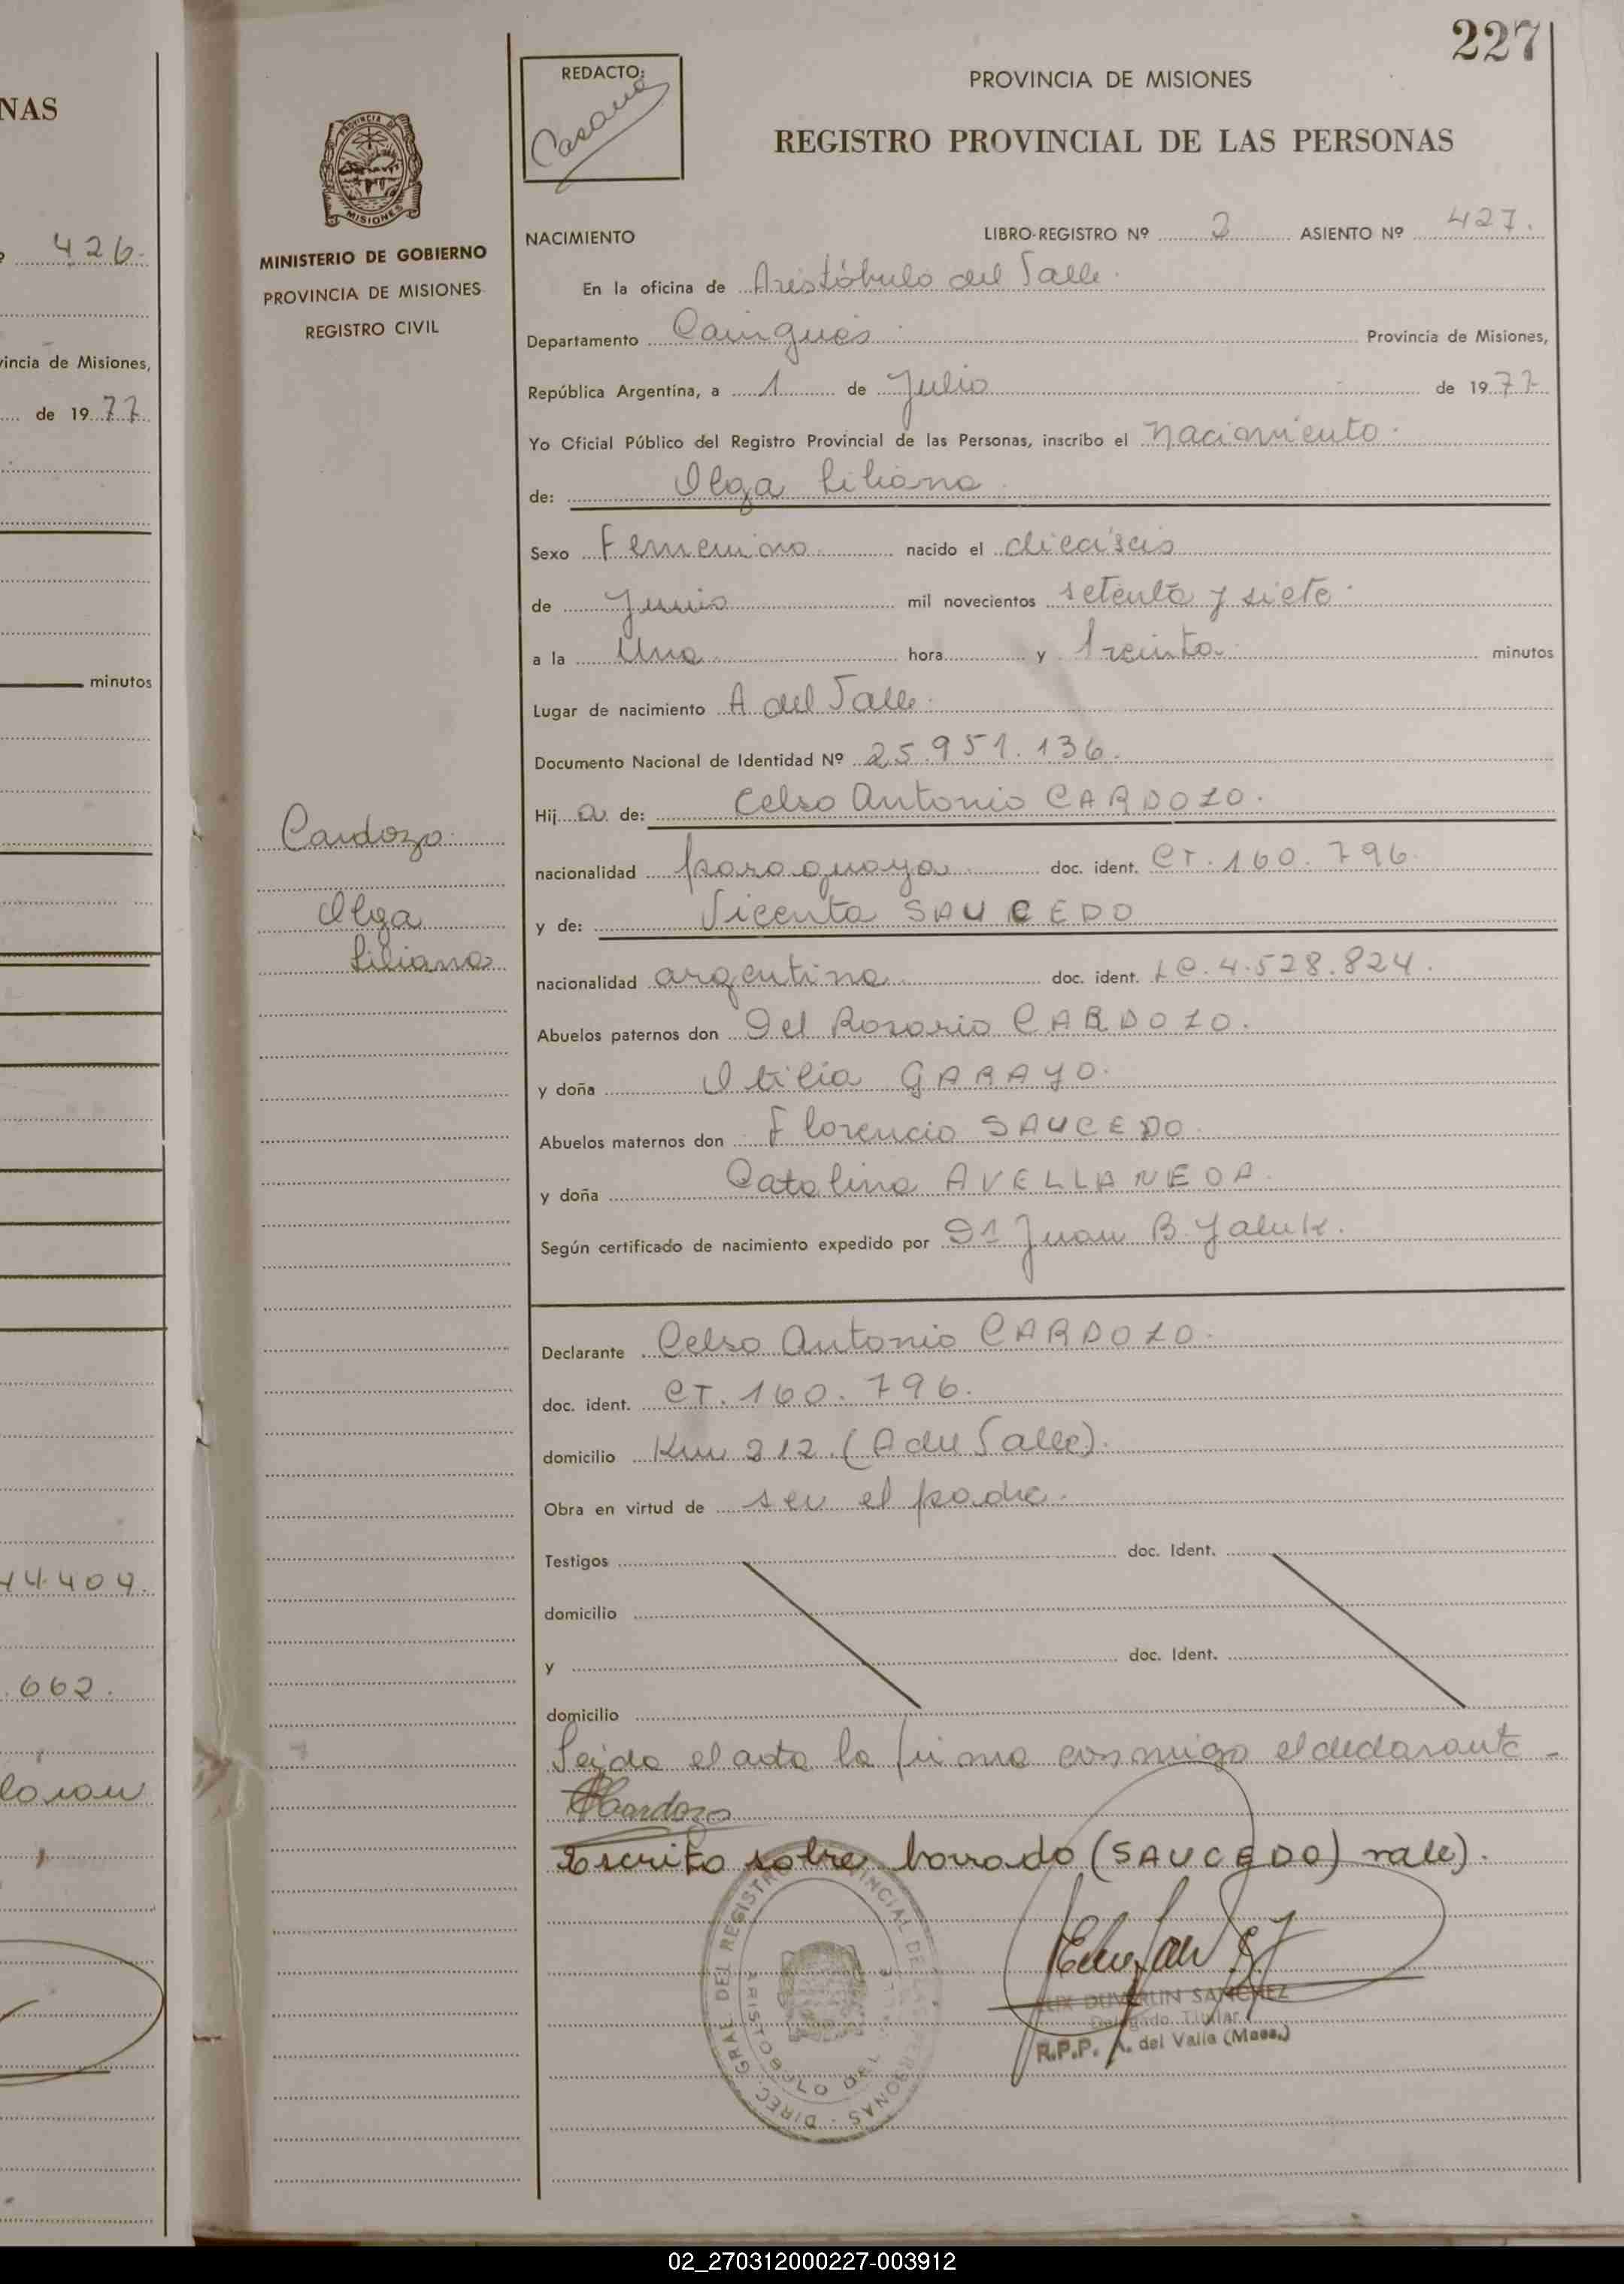 NAS
426.
vincia de Misiones,
de 1977
minutos
44.404.
.662.
227
REDACTO:
PROVINCIA DE MISIONES
REGISTRO PROVINCIAL DE LAS PERSONAS
PROVINCIA DE
MISIONES
MINISTERIO DE GOBIERNO
PROVINCIA DE MISIONES
REGISTRO CIVIL
NACIMIENTO LIBRO-REGISTRO Nº 2 ASIENTO Nº 427.
En la oficina de Aristóbulo del Valle.
Departamento Cainguás. Provincia de Misiones,
República Argentina, a 1 de Julio de 1977
Yo Oficial Público del Registro Provincial de las Personas, inscribo el nacimiento.
de: Olga Liliana
Sexo Femenino nacido el dieciseis
de Junio mil novecientos setenta y siete.
a la Una hora y treinta minutos
Lugar de nacimiento A del Valle.
Documento Nacional de Identidad Nº 25.951.136.
Hij a de: Celso Antonio CARDOZO.
nacionalidad paraguaya doc. ident. CT. 160.796.
y de: Vicenta SAUCEDO
nacionalidad argentina doc. ident. LC. 4.528.824.
Abuelos paternos don Del Rosario CARDOZO.
y doña Otilia GARAYO.
Abuelos maternos don Florencio SAUCEDO.
y doña Catalina AVELLANEDA.
Según certificado de nacimiento expedido por Dr Juan B. Yaluk.
Cardozo
Olga
Liliana
Declarante Celso Antonio CARDOZO.
doc. ident. CT. 160.796.
domicilio Km 212. (A del Valle).
Obra en virtud de ser el padre.
Testigos doc. Ident.
domicilio
y doc. Ident.
domicilio
Leida el acta la firma conmigo el declarante -
Cardozo
Escrito sobre borrado (SAUCEDO) vale).
DIREC. GRAL. DEL REGISTRO PROVINCIAL DE LAS PERSONAS
ARISTOBULO DEL VALLE
DUVERLIN SANCHEZ
Delegado Titular
R.P.P. A. del Valle (Mnes.)
02_270312000227-003912